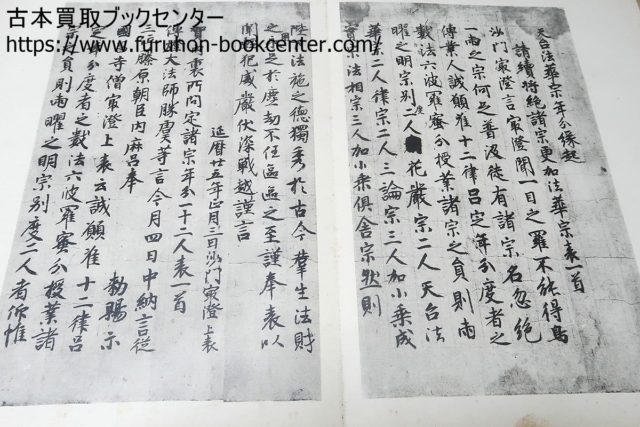 古本買取ブックセンター
https://www.furuhon-bookcenter.com/
天台法華宗年分縁起
請續將絶諸宗更加法華宗表一首
沙門最澄言最澄聞一目之羅不能得鳥
一兩之宗何足普汲徒有諸宗名忽絶
傳業人誠願准十二律呂定年分度者之
數法六波羅蜜分授業諸宗之員則兩
曜之明宗別二人花嚴宗二人天台法
華宗二人律宗二人三論宗三人加小乘成
實宗法相宗三人加小乘俱舍宗然則
陛下法施之德獨秀於古今群生法財
之用足於塵劫不任區區之至謹奉表以
聞犯威嚴伏深戰越謹言
延曆廿五年正月三日沙門最澄上表
賀内裏所問定諸宗年分一十二人表一首
傳燈大法師勝虞等言今月四日中納言從
三位藤原朝臣内麻呂奉 勅賜示
國昌寺僧最澄上表云誠願准十二律呂
定年分度者之數法六波羅蜜分授業諸
宗員則兩曜之明宗別度二人者仰惟